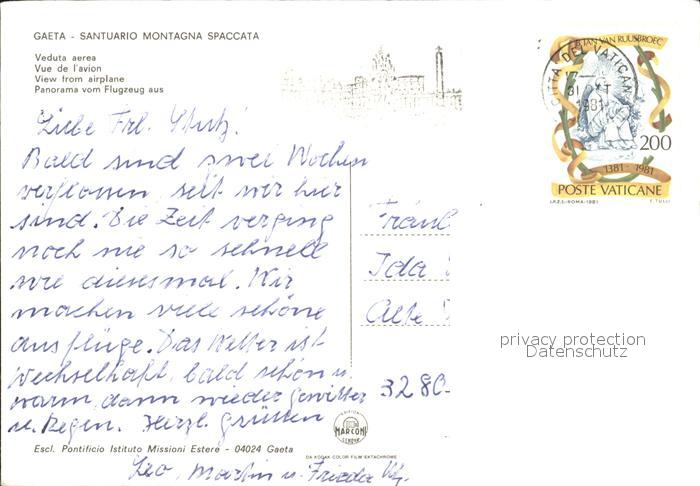 GAETA - SANTUARIO MONTAGNA SPACCATA
Veduta aerea
Vue de l'avion
View from airplane
Panorama vom Flugzeug aus
Liebe Frl.
Bald sind zwei Wochen
verflossen, seit wir hier
sind. Die Zeit verging
noch nie so schnell
wie diesesmal. Wir
machen viele schöne
Ausflüge. Das Wetter ist
wechselhaft, bald schön u.
warm, dann wieder Gewitter
u. Regen. Herzl. Grüssen
Leo, Martin u. Frieda
Escl. Pontificio Istituto Missioni Estere - 04024 Gaeta
EDITION
MARCONI
GENOVA
DA KODAK COLOR FILM EKTACHROME
CITTA DEL VATICANO
1981
B. JAN VAN RUUSBROEC
200
1381 - 1981
POSTE VATICANE
I.P.Z.S.-ROMA-1981
Fräul
Ida
Alte
3280-
privacy protection
Datenschutz